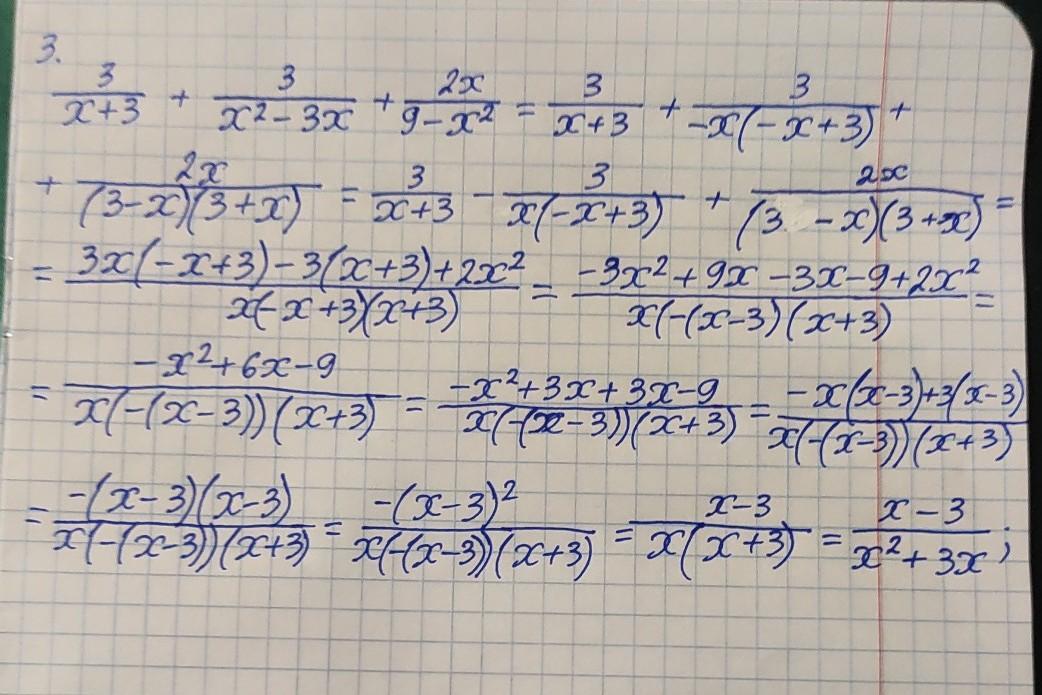 3.
\frac{3}{x+3} + \frac{3}{x^2-3x} + \frac{2x}{9-x^2} = \frac{3}{x+3} + \frac{3}{-x(-x+3)} +
+ \frac{2x}{(3-x)(3+x)} = \frac{3}{x+3} - \frac{3}{x(-x+3)} + \frac{2x}{(3-x)(3+x)} =
= \frac{3x(-x+3)-3(x+3)+2x^2}{x(-x+3)(x+3)} = \frac{-3x^2+9x-3x-9+2x^2}{x(-(x-3)(x+3)} =
= \frac{-x^2+6x-9}{x(-(x-3))(x+3)} = \frac{-x^2+3x+3x-9}{x(-(x-3))(x+3)} = \frac{-x(x-3)+3(x-3)}{x(-(x-3))(x+3)}
= \frac{-(x-3)(x-3)}{x(-(x-3))(x+3)} = \frac{-(x-3)^2}{x(-(x-3))(x+3)} = \frac{x-3}{x(x+3)} = \frac{x-3}{x^2+3x};